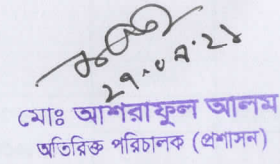 মোঃ আশরাফুল আলম
অতিরিক্ত পরিচালক (প্রশাসন)